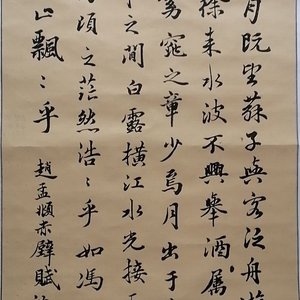 月既望蘇子與客泛舟遊
徐来水波不興舉酒屬
窈窕之章少焉月出于
之間白露橫江水光接
頃之茫然浩〻乎如馮
止飄〻乎
趙孟頫赤壁賦